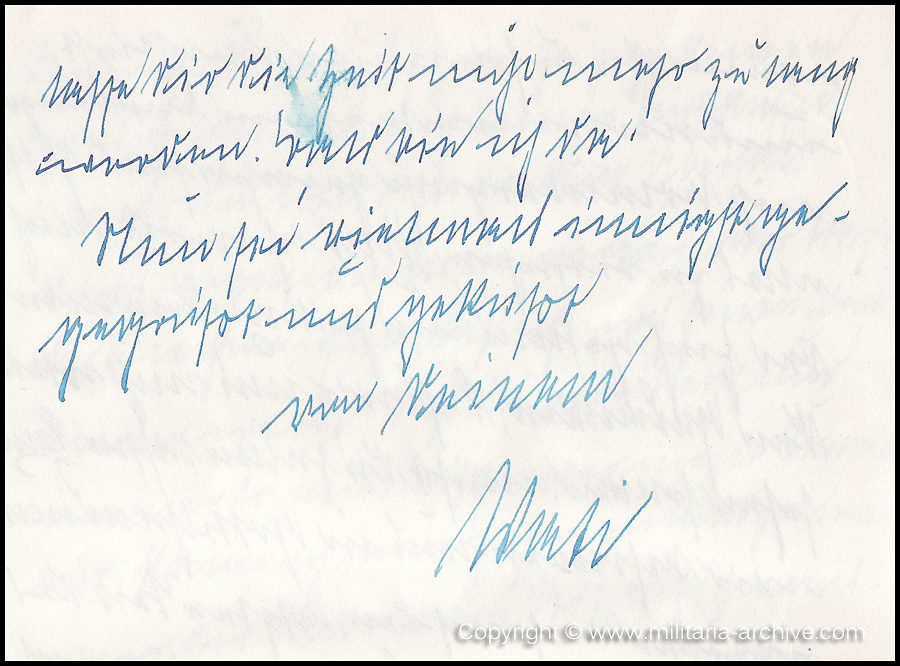 lasse Dir die Zeit nicht mehr zu lang
werden. Bald bin ich da!
Nun sei vielmals innigst ge-
gegrüßt und geküßt
von Deinem
Copyright © www.militaria-archive.com